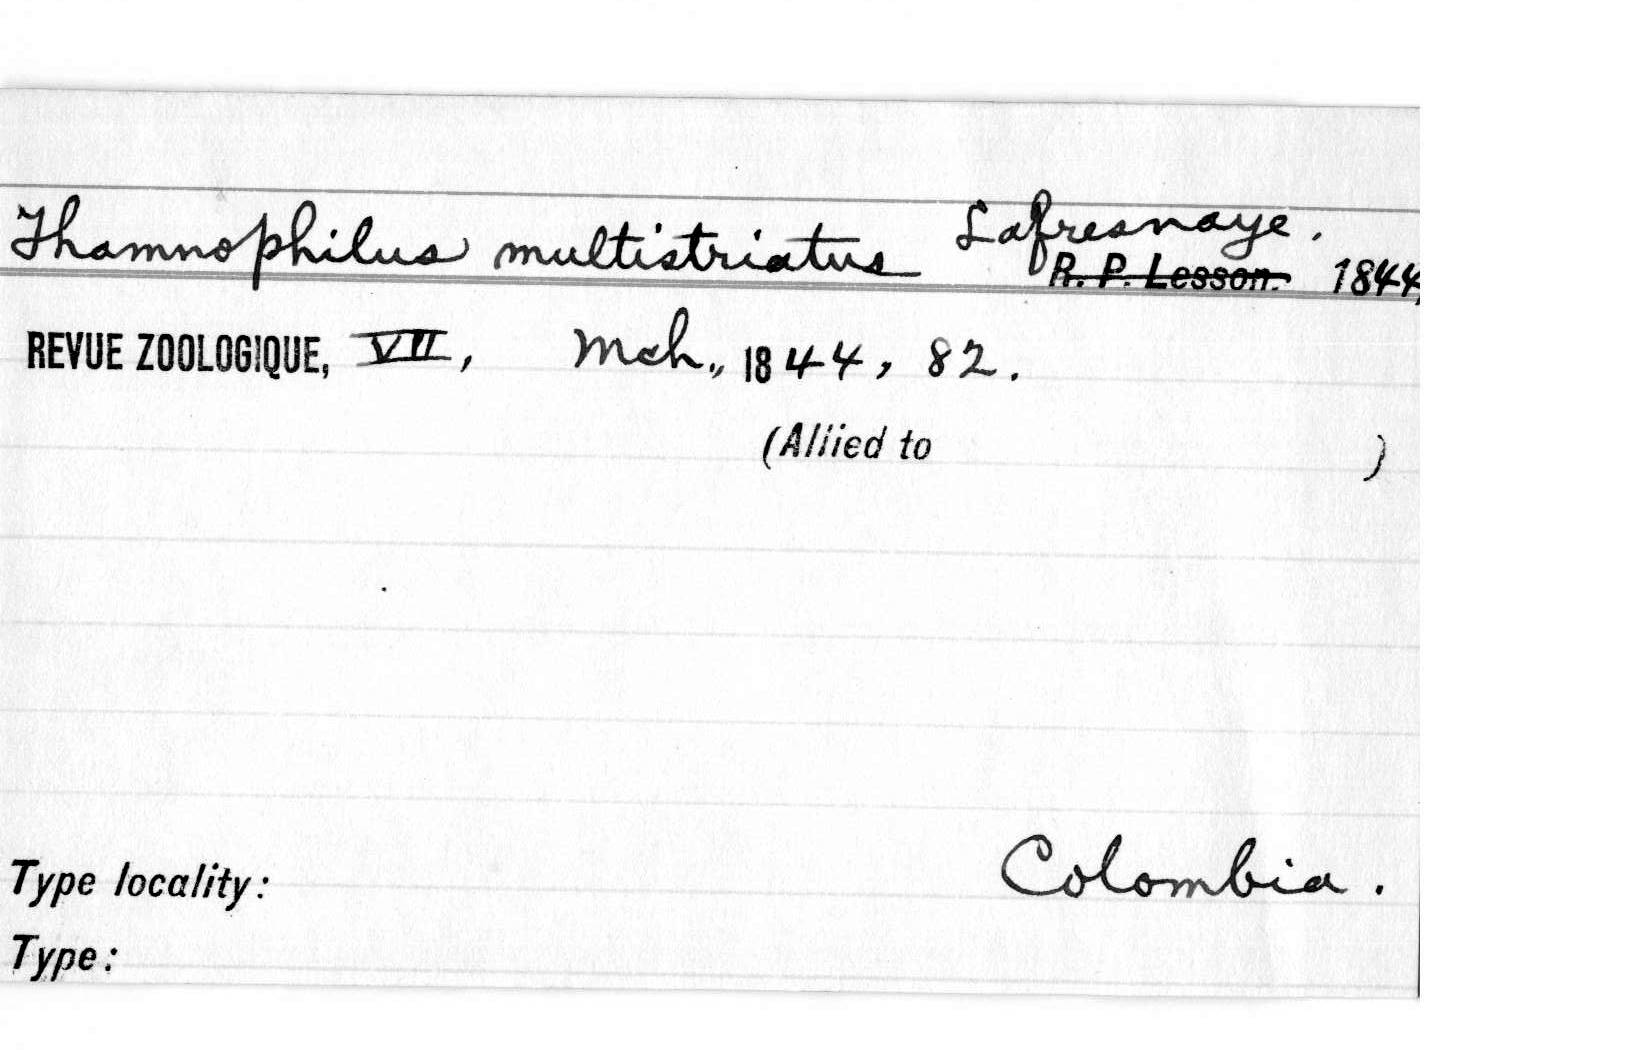 Thamnophilus multistriatus Lafresnaye.
R. P. Lesson. 1844,
REVUE ZOOLOGIQUE, VII, Mch., 1844, 82.
(Allied to )
Type locality: Colombia.
Type: